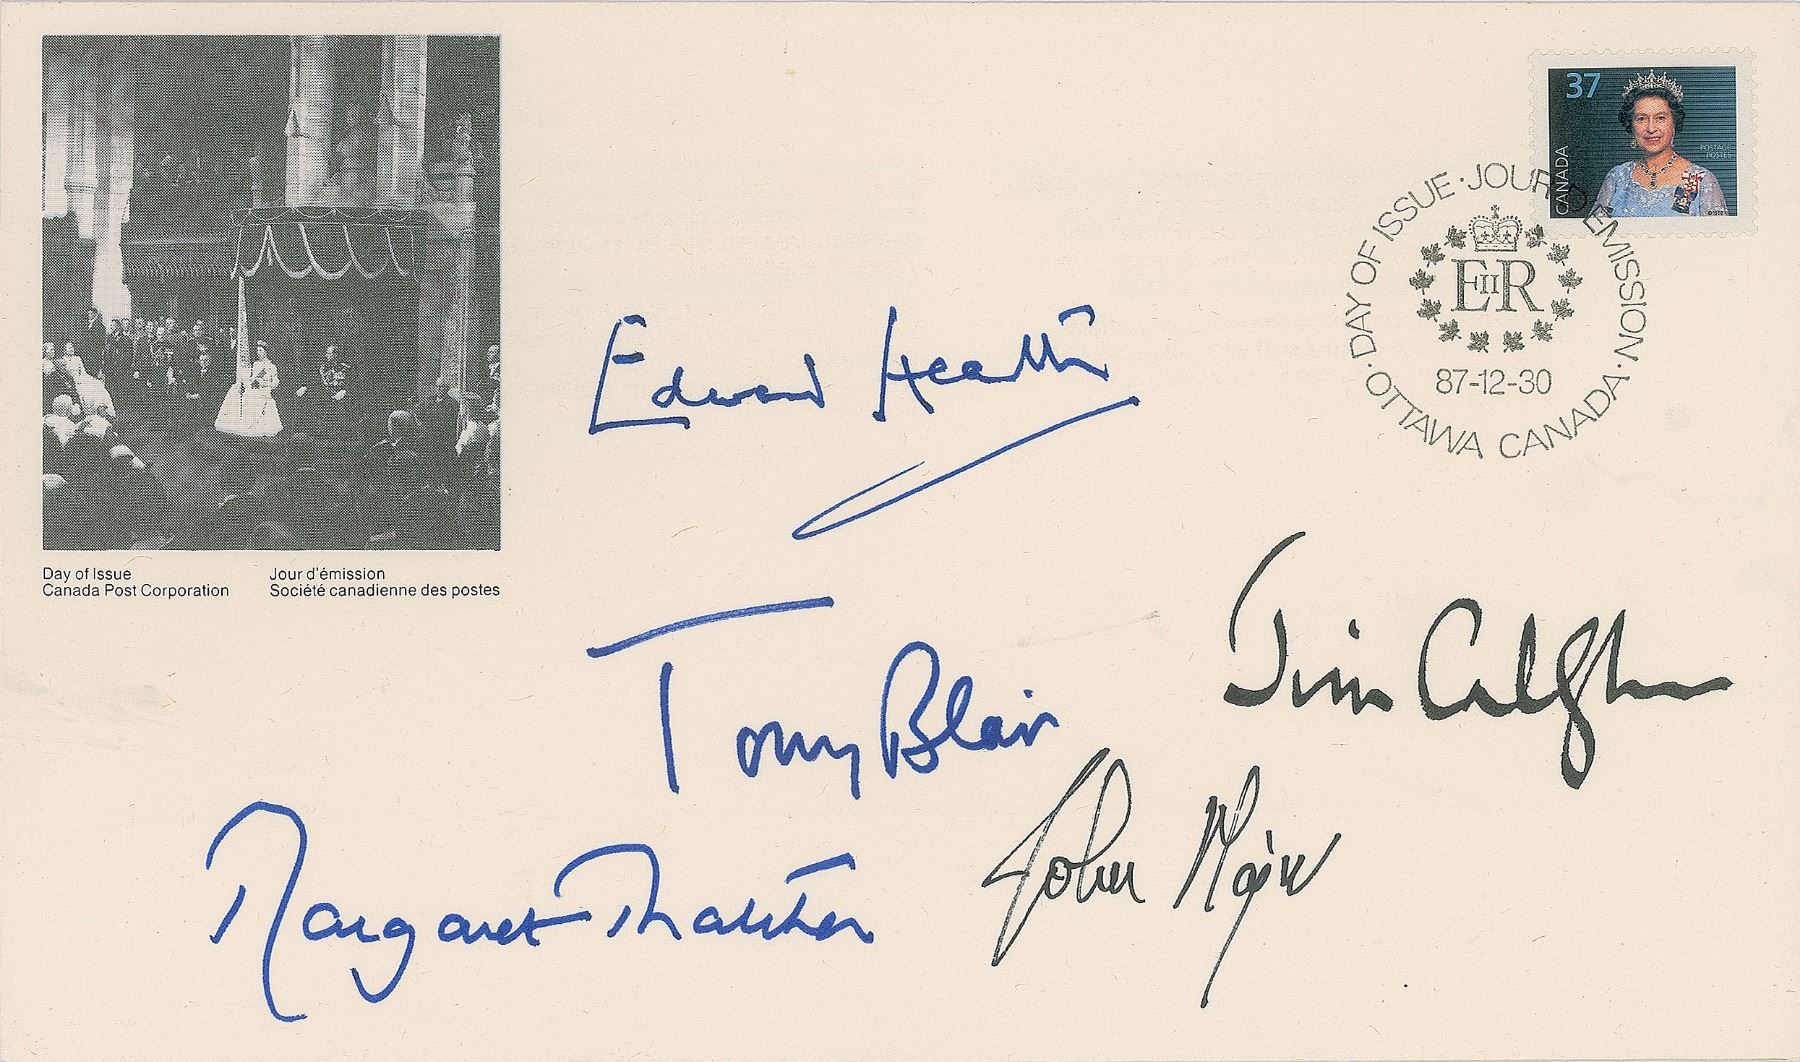 37
CANADA
POSTAGE
POSTES
DAY OF ISSUE · JOUR D'ÉMISSION ·
E II R
87-12-30
OTTAWA CANADA ·
Edward Heath
Day of Issue
Canada Post Corporation
Jour d'émission
Société canadienne des postes
Jim Callaghan
Tony Blair
John Major
Margaret Thatcher